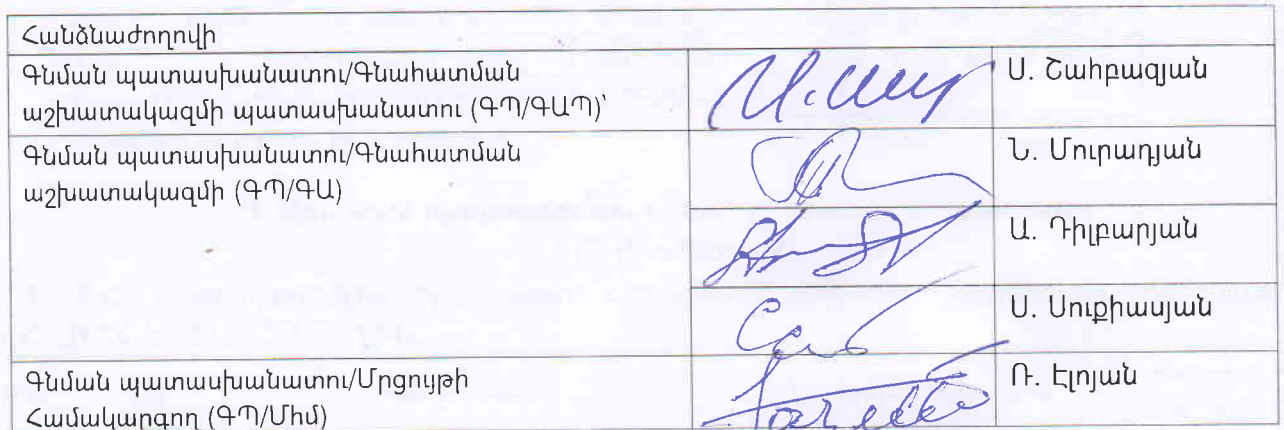 Հանձնաժողովի
Գնման պատասխանատու/Գնահատման
աշխատակազմի պատասխանատու (ԳՊ/ԳԱՊ)՝
Ս. Շահբազյան
Գնման պատասխանատու/Գնահատման
աշխատակազմի (ԳՊ/ԳԱ)
Ն. Մուրադյան
Ա. Դիլբարյան
Ս. Սուքիասյան
Գնման պատասխանատու/Մրցույթի
Համակարգող (ԳՊ/Միմ)
Ռ. Էլոյան